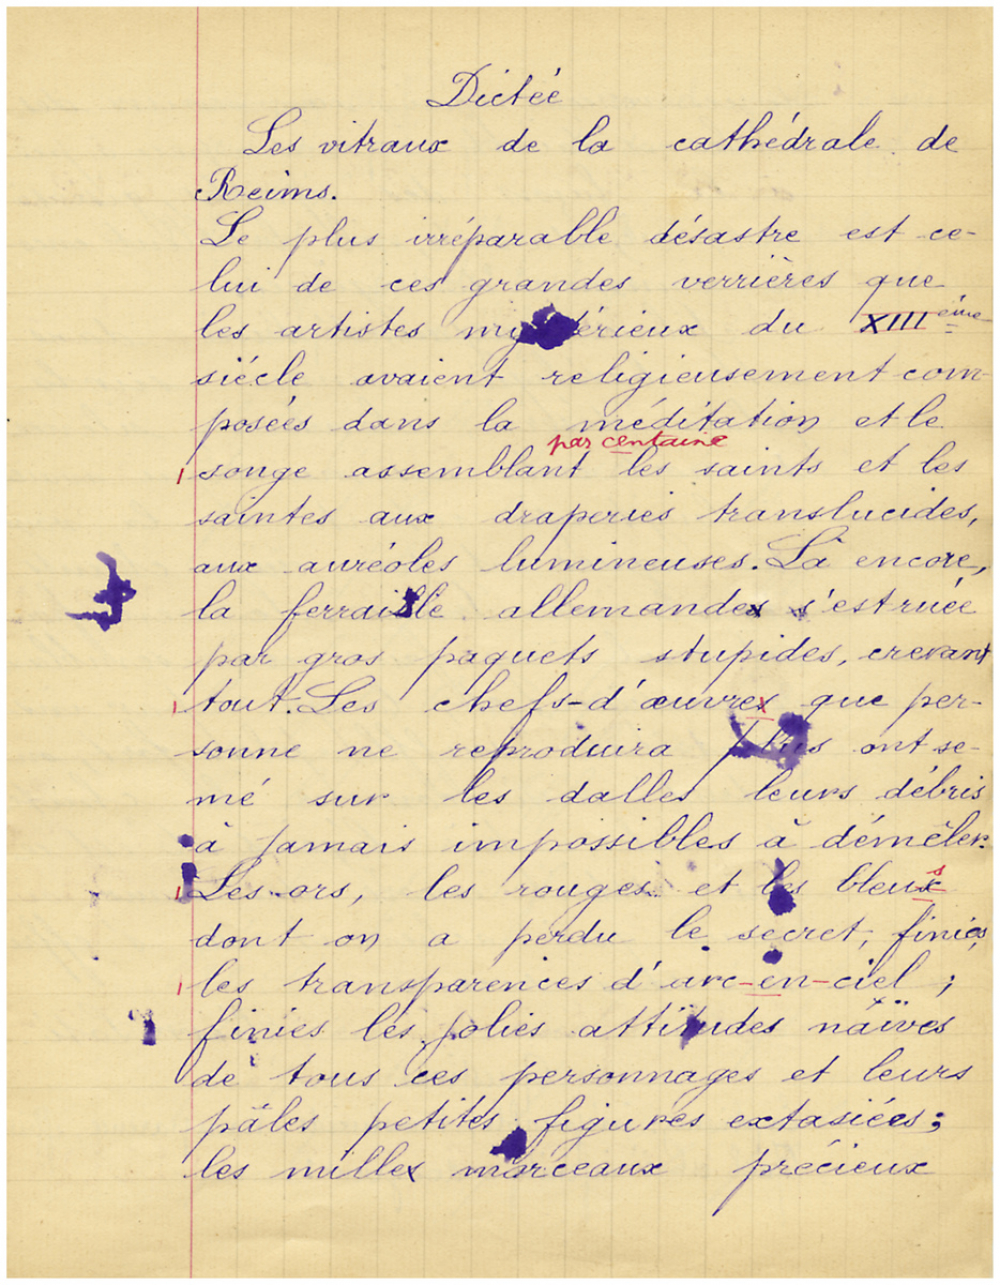 Dictée
Les vitraux de la cathédrale de
Reims.
Le plus irréparable désastre est ce-
lui de ces grandes verrières que
les artistes mystérieux du XIIIème
siécle avaient religieusement com-
posées dans la méditation et le
par centaine
songe assemblant les saints et les
saintes aux draperies translucides,
aux auréoles lumineuses. Là encore,
la ferraille allemande s'estruée
par gros paquets stupides, crevant
tout. Les chefs-d'œuvrex que per-
sonne ne reproduira plus ont se-
mé sur les dalles leurs débris
à jamais impossibles à démêler.
Les ors, les rouges et les bleus
dont on a perdu le secret, finies,
les transparences d'arc-en-ciel ;
finies les jolies attitudes näives
de tous ces personnages et leurs
pâles petites figures extasiées ;
les mille morceaux précieux